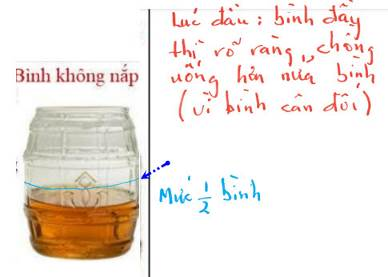 Bình không nắp
Lúc đầu: bình đầy
thì rõ ràng, chồng
uống hơn nửa bình
(vì bình cân đối)
Mức 1/2 bình